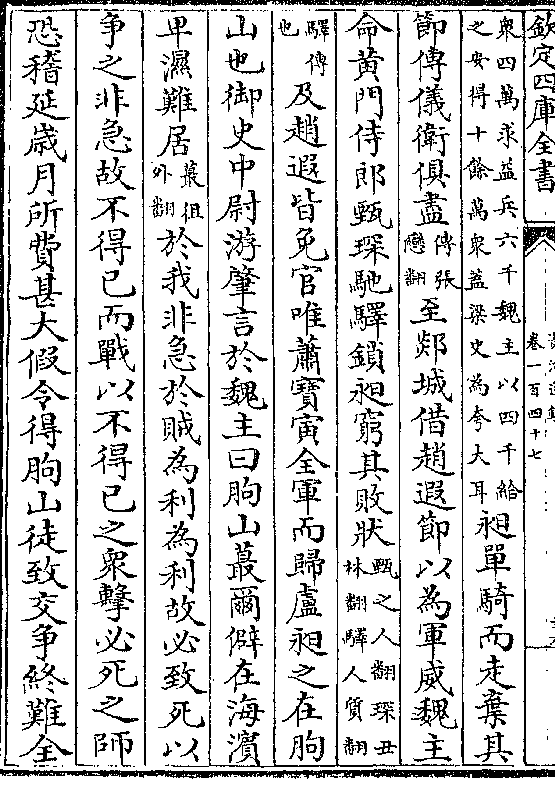 欽定四庫全書
卷一百四十七
衆四萬求益兵六千魏主以四千給
之安得十餘萬衆蓋梁史為夸大耳
昶單騎而走棄其
節傳儀衛俱盡
傳張
戀翻
至郯城借趙遐節以為軍威魏主
命黃門侍郎甄琛馳驛鎖昶窮其敗狀
甄之人翻琛丑
林翻驛人質翻
驛傳
也
及趙遐皆免官唯蕭寶寅全軍而歸盧昶之在朐
山也御史中尉游肇言於魏主曰朐山蕞爾僻在海濱
卑濕難居
蕞徂
外翻
於我非急於賊為利為利故必致死以
争之非急故不得已而戰以不得已之衆擊必死之師
恐稽延歲月所費甚大假令得朐山徒致交爭終難全